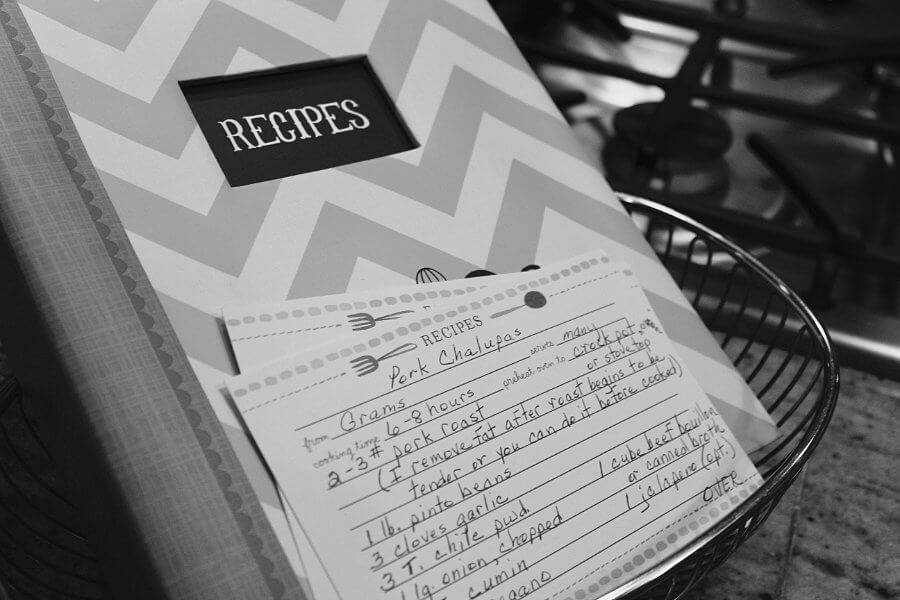 RECIPES
RECIPES
Pork Chalupas
from Grams serves many
cooking time 6-8 hours preheat oven to crock pot, oven
or stove top
2-3 # pork roast
(I remove fat after roast begins to be
tender or you can do it before cooked)
1 lb. pinto beans
3 cloves garlic 1 cube beef bouillon
3 T. chile pwd. or canned broth
1 lg. onion, chopped 1 jalapeno (opt.)
cumin OVER